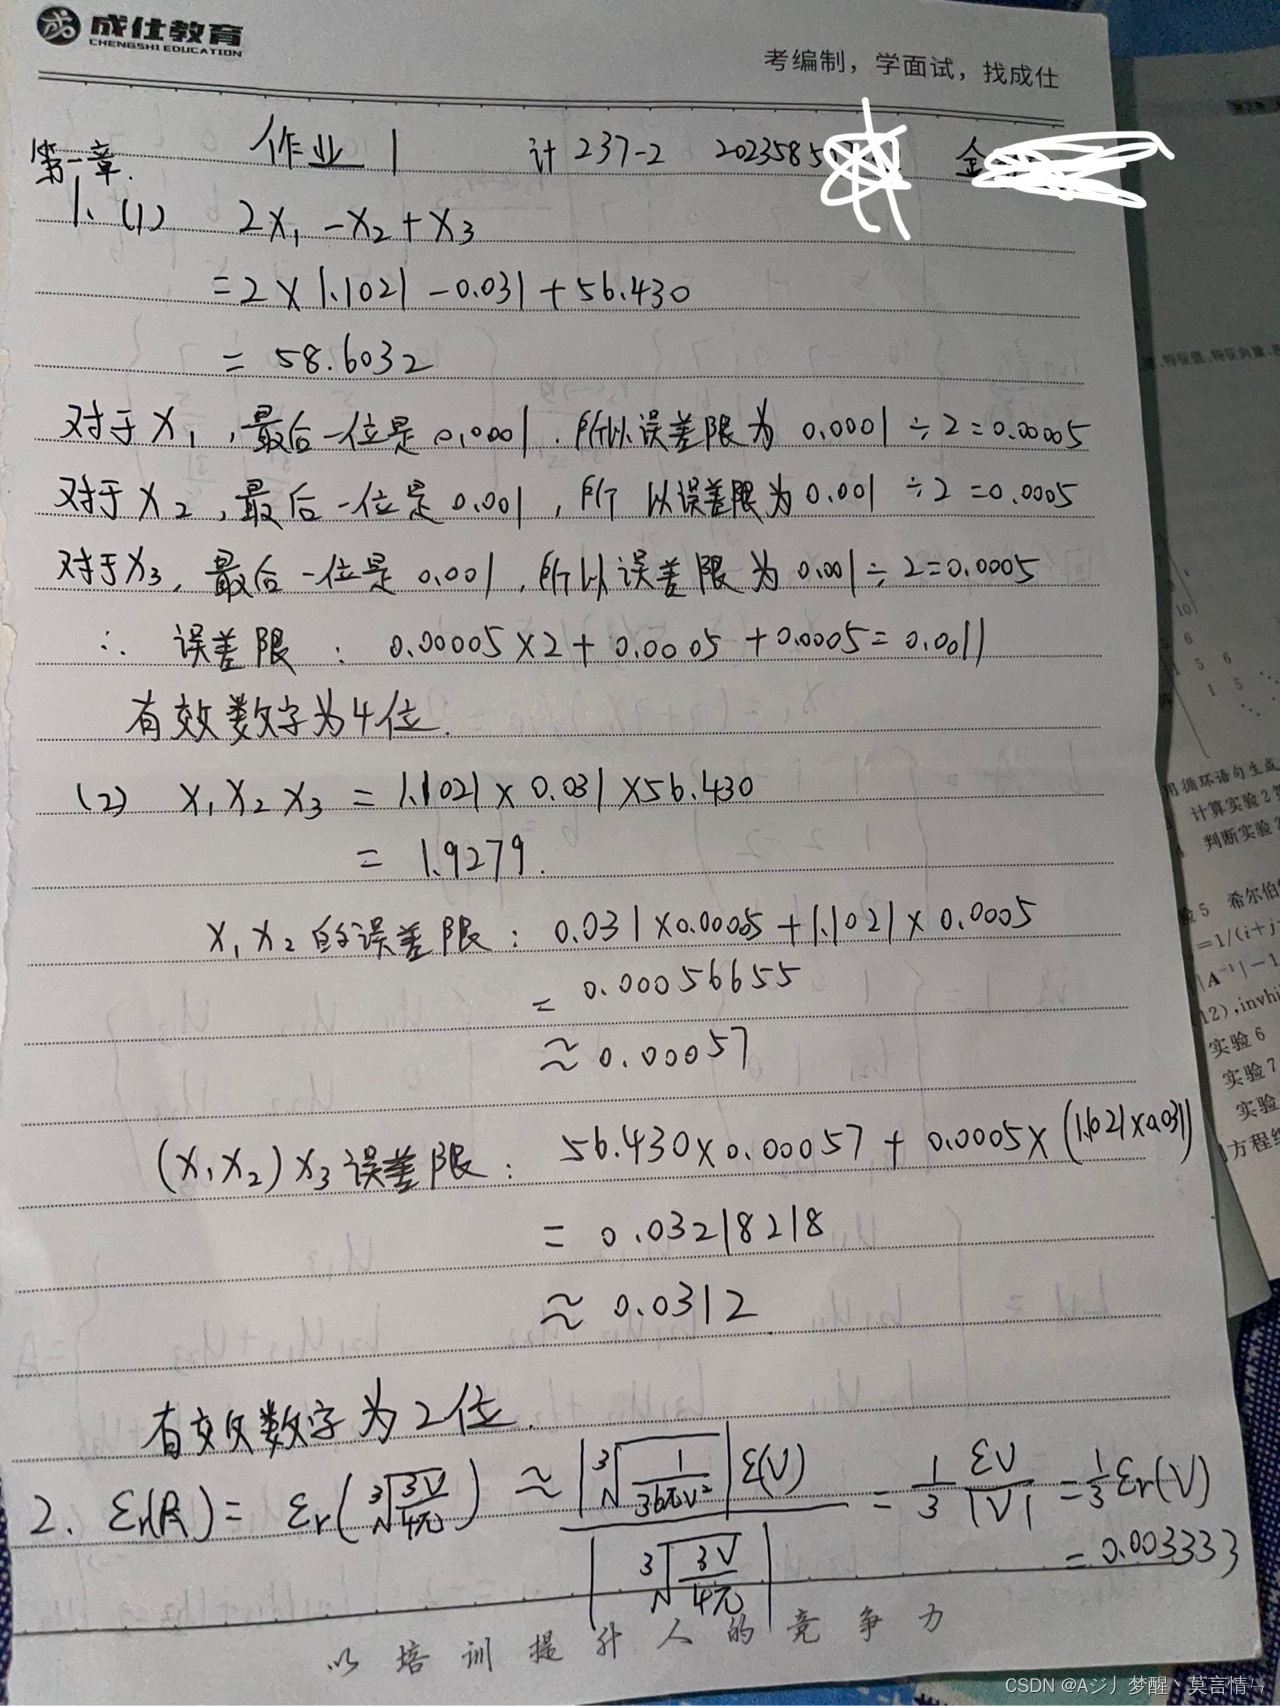 成仕教育
CHENGSHI EDUCATION
考编制，学面试，找成仕
第一章. 作业1 计237-2 2023585 金
1、(1) 2x₁-x₂+x₃
=2×1.1021-0.031+56.430
=58.6032
对于x₁,最后一位是0.0001.所以误差限为0.0001÷2=0.00005
对于x₂,最后一位是0.001,所以误差限为0.001÷2=0.0005
对于x₃,最后一位是0.001,所以误差限为0.001÷2=0.0005
∴ 误差限：0.00005×2+0.0005+0.0005=0.0011
有效数字为4位.
(2) x₁x₂x₃=1.1021×0.031×56.430
=1.9279.
x₁x₂的误差限：0.031×0.00005+1.1021×0.0005
=0.00056655
≈0.00057
(x₁x₂)x₃误差限：56.430×0.00057+0.0005×(1.1021×0.031)
=0.03218218
≈0.0312
有效数字为2位.
2. εr(R)=εr(∛(3V/4π))≈|∛(1/36πV²)|ε(V)/|∛(3V/4π)|=1/3 εV/|V|=1/3 εr(V)
=0.003333
以培训提升人的竞争力
用循环语句生成
计算实验2
判断实验
希尔伯
=1/(i+j-
|A⁻¹|-1
12),invhi
实验6
实验7
实验
方程组
CSDN @Aジ丿梦醒丶莫言情ㄣ